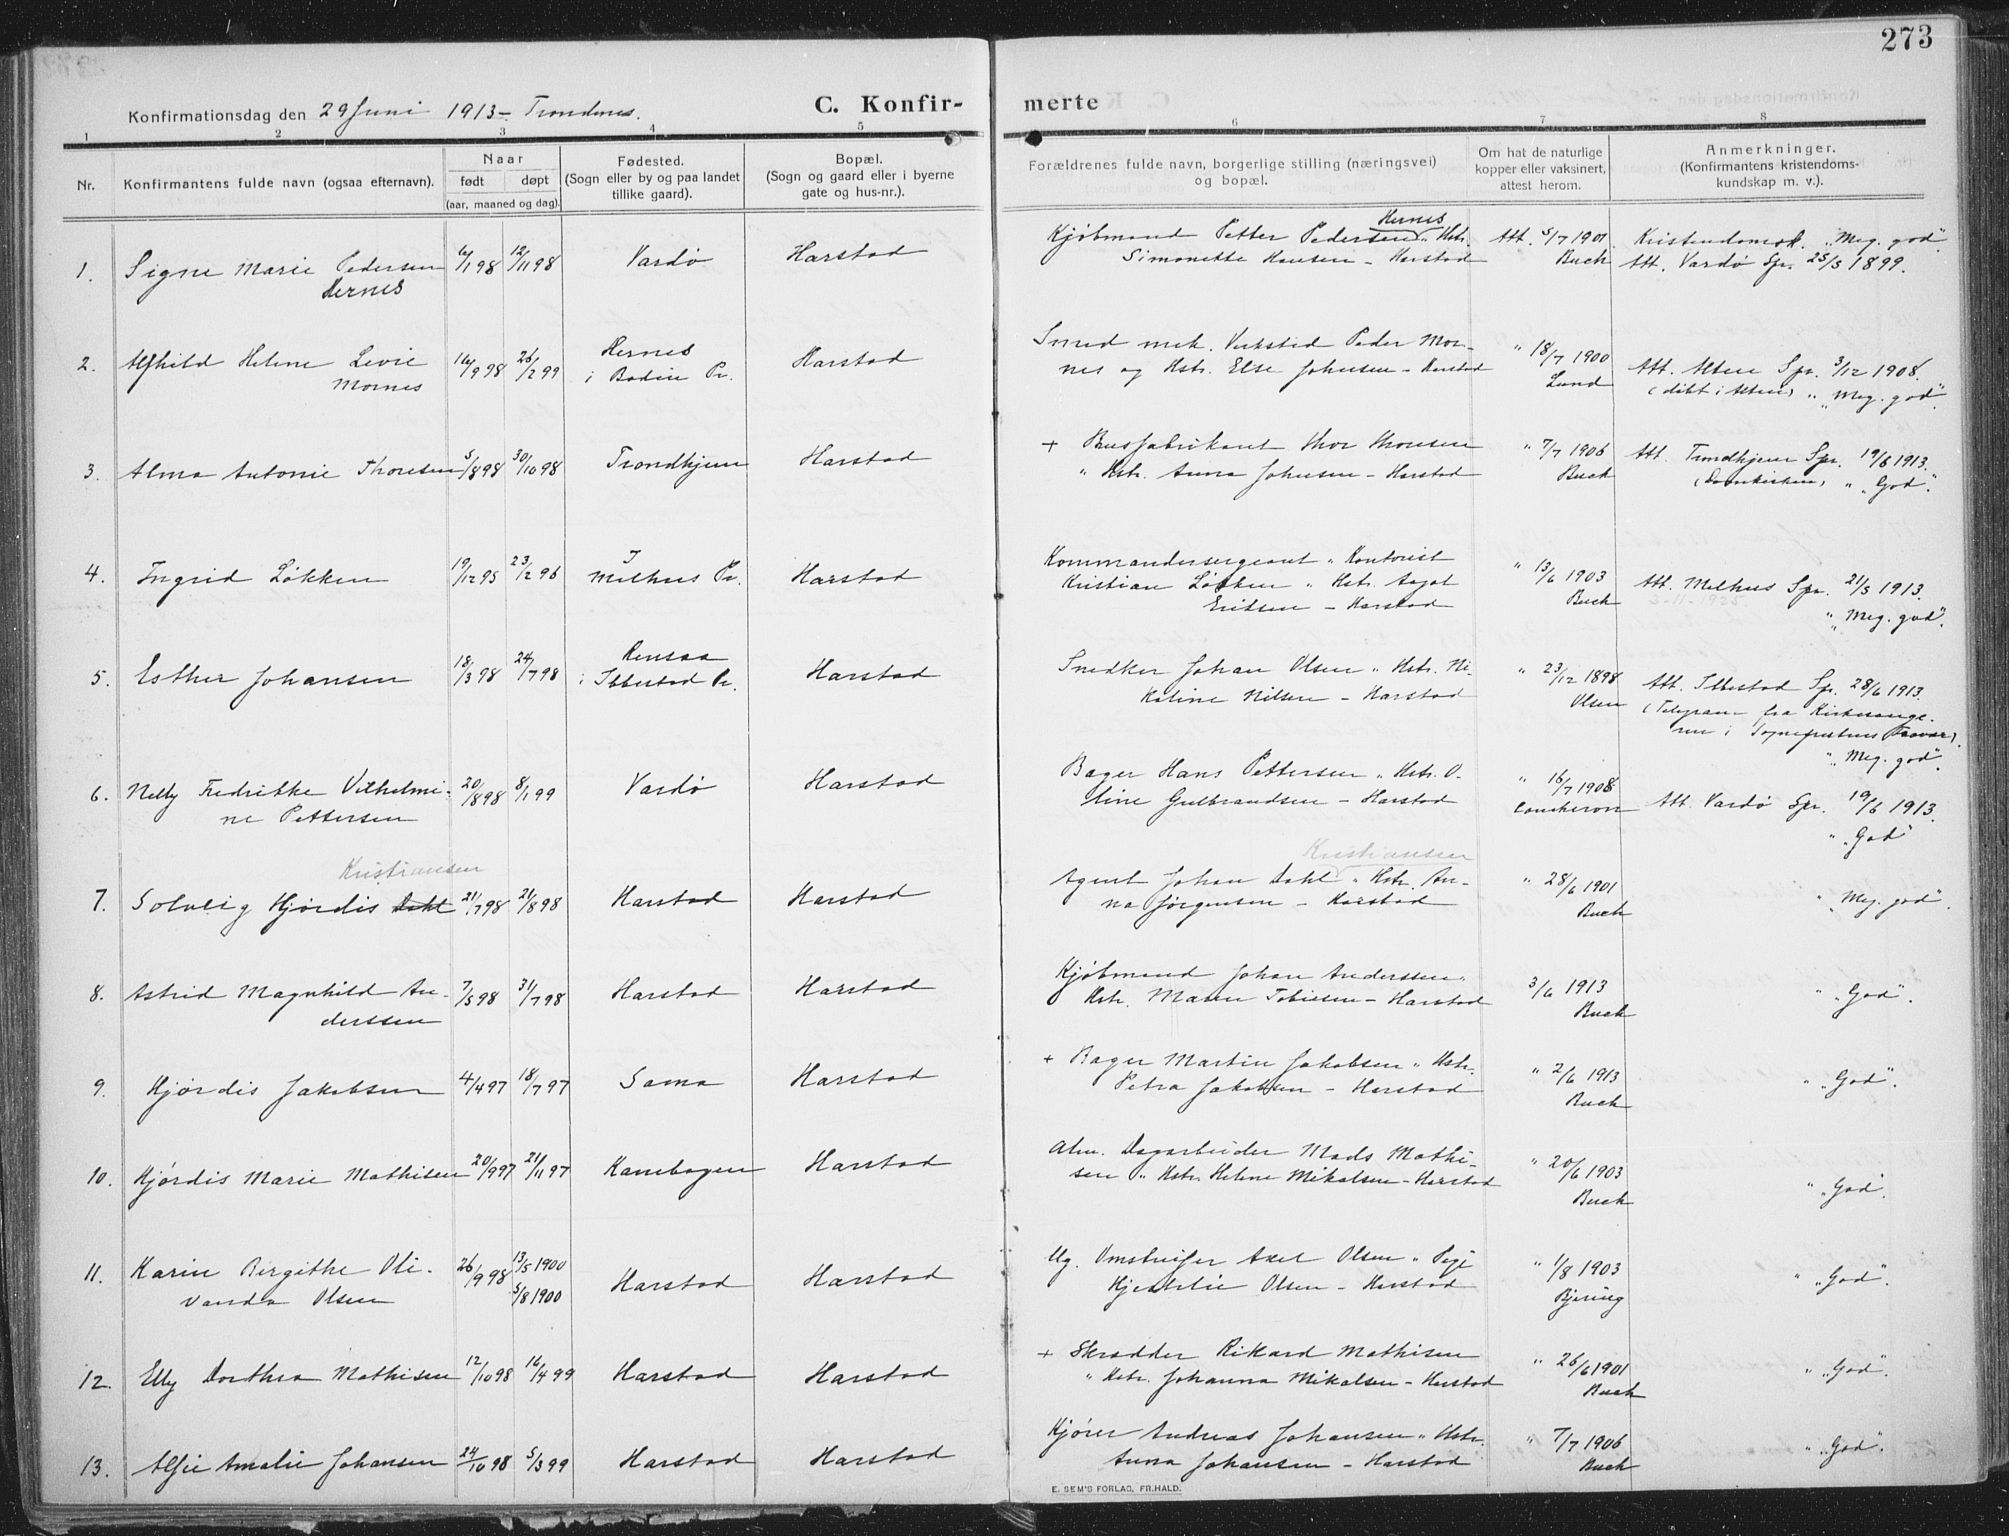 273
Konfirmationsdag den 29 Juni 1913 - Trondenes.
C. Konfir-
merte
1 2 3 4 5 6 7 8
Nr.
Konfirmantens fulde navn (ogsaa efternavn).
Naar
født døpt
(aar, maaned og dag).
Fødested.
(Sogn eller by og paa landet
tillike gaard).
Bopæl.
(Sogn og gaard eller i byerne
gate og hus-nr.).
Forældrenes fulde navn, borgerlige stilling (næringsvei)
og bopæl.
Om hat de naturlige
kopper eller vaksinert,
attest herom.
Anmerkninger.
(Konfirmantens kristendoms-
kundskap m. v.).
1. Signe Marie Pedersen 6/1 98 12/11 98 Vardø Harstad
Hernes
Hernes
Kjøbmand Petter Pedersen " Hstr.
Simonette Hansen - Harstad
Att. 5/7 1901
Buch
Kristendomsk. "Meg. god"
Att. Vardø Spr. 25/3 1899.
2. Alfhild Helene Lovie 16/9 98 26/2 99 Hernes Harstad
Mornes i Bodin Pr.
Smed mek. Verksted Peder Mor-
nes og Hstr. Else Johnsen - Harstad
" 18/7 1900
Lund
Att. Alten Spr. 3/12 1908.
(døbt i Alten) " "Meg. god".
3. Alma Antonie Thoresen 5/8 98 30/10 98 Trondhjem Harstad
+ Brusfabrikant Thor Thoresen
" Hstr. Anna Johnsen - Harstad
" 7/7 1906
Buch
Att. Trondhjem Spr. 19/6 1913.
(Domkirken) " "God".
4. Ingrid Løkken 19/12 95 23/2 96 I Harstad
Melhus Pr.
Kommandersergeant " Kontorist
Kristian Løkken " Hstr. Aagot
Eriksen - Harstad
" 13/6 1903
Buch
Att. Melhus Spr. 21/5 1913.
" "Meg. god".
5. Esther Johansen 18/3 98 24/7 98 Rensaa Harstad
i Ibbestad Pr.
Snedker Johan Olsen " Hstr. Ni-
koline Nilsen - Harstad
" 23/12 1898
Olsen
Att. Ibbestad Spr. 28/6 1913.
(Telegram fra Kirkesange-
ren i Sognepresstens Fravær).
" "Meg. god".
6. Nelly Fredrikke Vilhelmi- 20/8 98 8/1 99 Vardø Harstad
ne Pettersen
Bager Hans Pettersen " Hstr. O-
line Gulbrandsen - Harstad
" 16/7 1908
Coucheron
Att. Vardø Spr. 19/6 1913.
" "God"
Kristiansen
7. Solveig Hjørdis Dahl 21/7 98 21/8 98 Harstad Harstad
Kristiansen
Agent Johan Dahl " Hstr. An-
na Jørgensen - Harstad
" 28/6 1901
Buch
" "Meg. god".
8. Astrid Magnhild An- 7/5 98 31/7 98 Harstad Harstad
derssen
Kjøbmand Johan Anderssen "
Hstr. Maren Tobiesen - Harstad
3/6 1913
Buch
" "God".
9. Hjørdis Jakobsen 4/4 97 18/7 97 Sama Harstad
+ Bager Martin Jakobsen " Hstr.
Petra Jakobsen - Harstad
" 2/6 1913
Buch
" "God".
10. Hjørdis Marie Mathisen 20/9 97 21/11 97 Kanebogen Harstad
Alm. Dagarbeider Mads Mathi-
sen " Hstr. Helene Mikalsen - Harstad
" 20/6 1903
Buch
" "God".
11. Karin Birgithe Oli- 26/9 98 13/5 1900 Harstad Harstad
vanda Olsen 5/8 1900
Ug. Omstreifer Axel Olsen " Pige
Olsen - Harstad
" 1/8 1903
Bjering
" "God".
12. Elly Dorthea Mathisen 12/10 98 16/4 99 Harstad Harstad
+ Skrædder Rikard Mathisen
" Hstr. Johanna Mikalsen - Harstad
" 26/6 1901
Buch
" "God".
13. Alfie Amalie Johansen 24/10 98 5/3 99 Harstad Harstad
Kjører Andreas Johansen " Hstr.
Anna Johansen - Harstad
" 7/7 1906
Buch
" "God".
E. SEM'S FORLAG, FR.HALD.